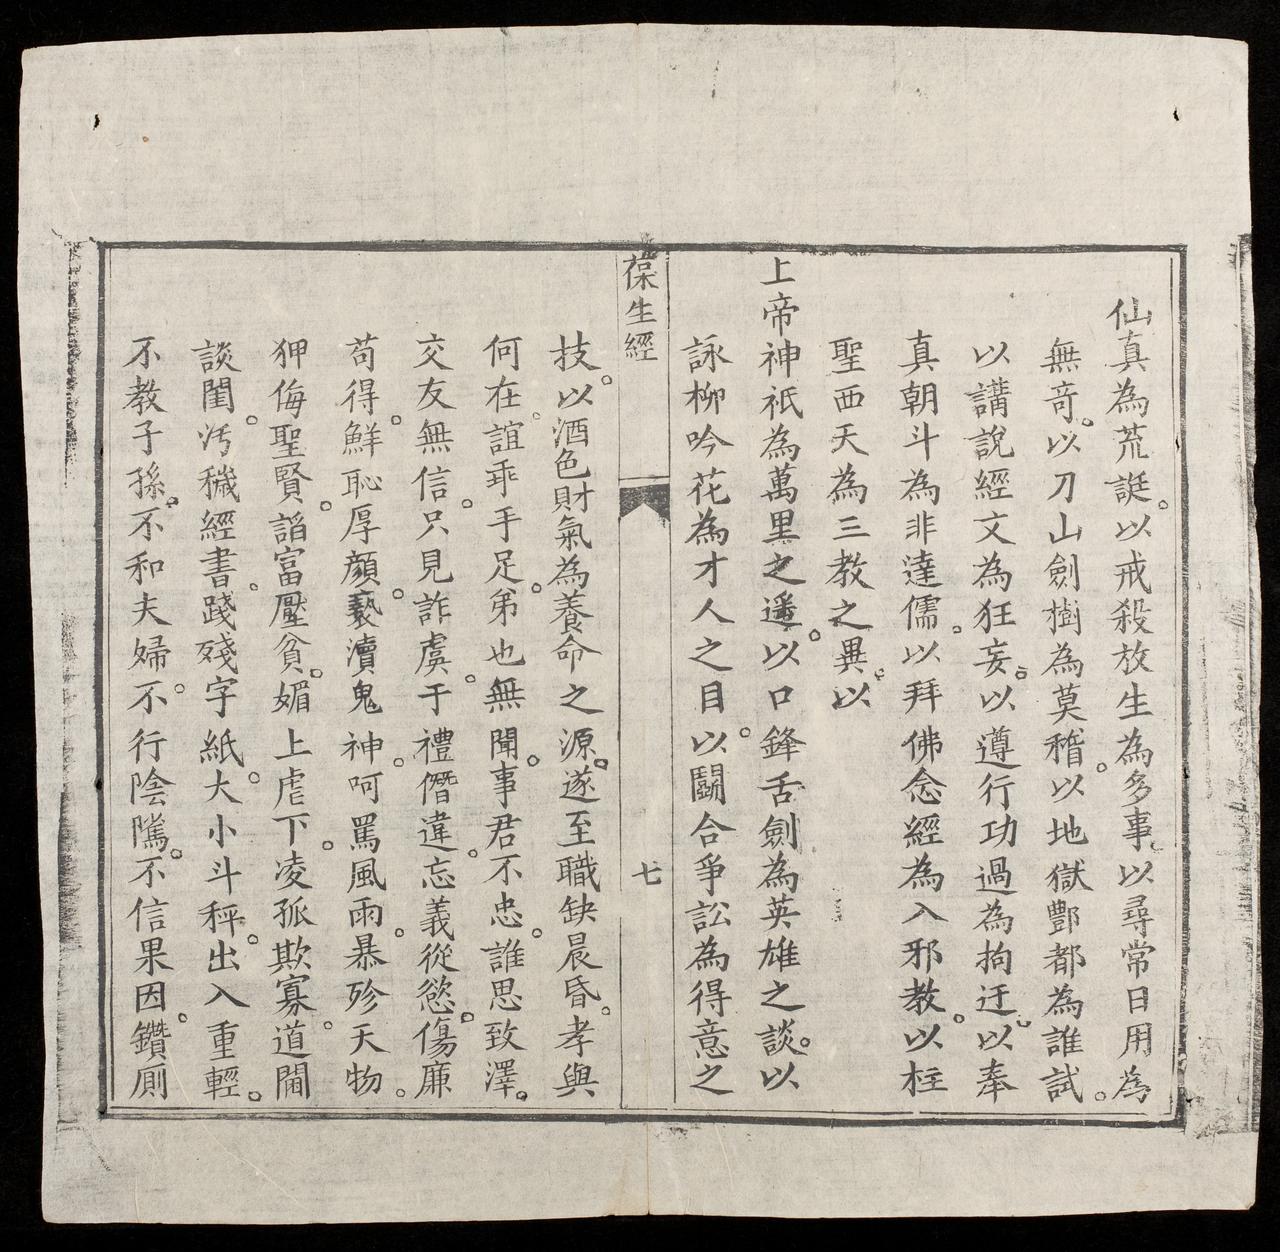 仙真為荒誕。以戒殺放生為多事。以尋常日用為
無竒。以刀山劍樹為莫稽。以地獄酆都為誰試。
以講說經文為狂妄。以遵行功過為拘迂。以奉
真朝斗為非達儒。以拜佛念經為入邪教。以柱
聖西天為三教之異。以
上帝神祇為萬里之遥。以口鋒舌劍為英雄之談。以
詠柳吟花為才人之目。以鬪合爭訟為得意之
葆生經
七
技。以酒色財氣為養命之源。遂至職缺晨昏。孝與
何在。誼乖手足。弟也無聞。事君不忠。誰思致澤。
交友無信。只見詐虞。于禮僭違。忘義從慾。傷廉
苟得。鮮恥厚顔。褻瀆鬼神。呵罵風雨。暴殄天物。
狎侮聖賢。諂富壓貧。媚上虐下。凌孤欺寡。道閫
談閨。污穢經書。踐殘字紙。大小斗秤。出入重輕。
不教子孫。不和夫婦。不行陰隲。不信果因。鑽厠